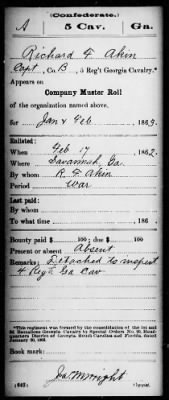 (Confederate.)
A 5 Cav. Ga.
Richard F Akin
Capt, Co. B, 5 Reg't Georgia Cavalry.*
Appears on
Company Muster Roll
of the organization named above,
for Jan & Feb, 1863.
Enlisted:
When Feb 17, 1862.
Where Savannah, Ga.
By whom R. F. Akin
Period War
Last paid:
By whom
To what time , 186 .
Bounty paid $ 100; due $ 100
Present or absent Absent
Remarks: Detached to inspect
4 Regt Ga Cav
*This regiment was formed by the consolidation of the 1st and
2d Battalions Georgia Cavalry by Special Orders No. 20, Head-
quarters District of Georgia, British Carolina and Florida, dated
January 20, 1863.
Book mark:
(642) Copyist.